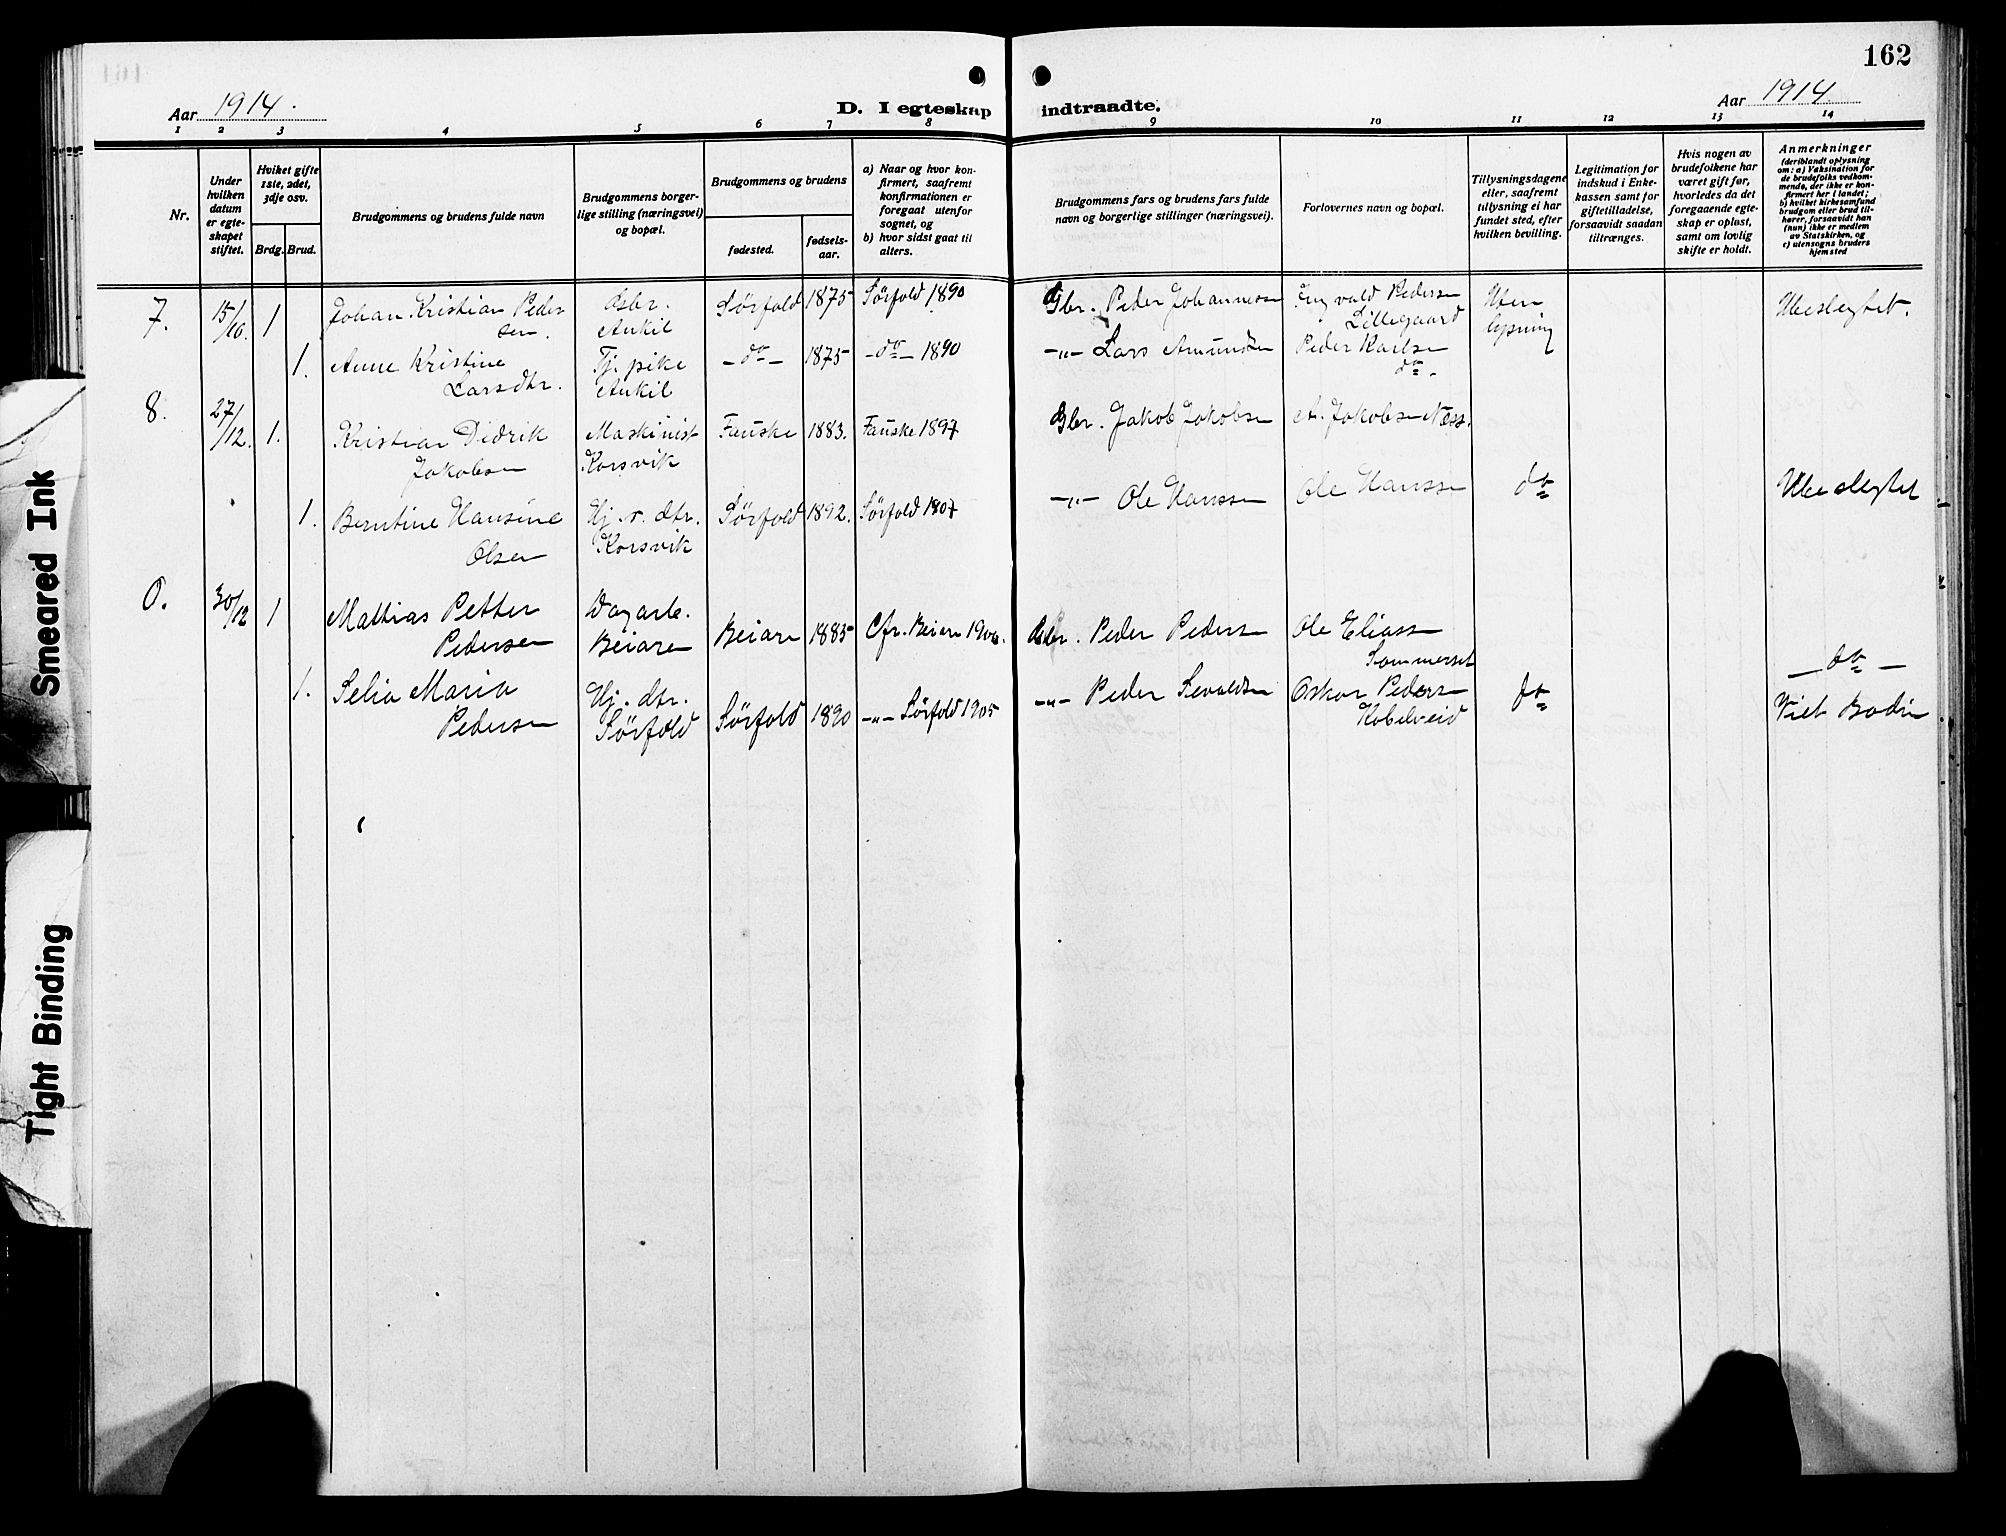 162
Aar 1914.
D. I egteskap indtraadte.
Aar 1914.
1 2 3 4 5 6 7 8 9 10 11 12 13 14
Nr.
Under
hvilken
datum
er egte-
skapet
stiftet.
Hviket gifte
1ste, 2det,
3dje osv.
Brdg. Brud.
Brudgommens og brudens fulde navn
Brudgommens borger-
lige stilling (næringsvei)
og bopæl.
Brudgommens og brudens
fødested.
fødsels-
aar.
a) Naar og hvor kon-
firmert, saafremt
konfirmationen er
foregaat utenfor
sognet, og
b) hvor sidst gaat til
alters.
Brudgommens fars og brudens fars fulde
navn og borgerlige stillinger (næringsvei).
Forlovernes navn og bopæl.
Tillysningsdagene
eller, saafremt
tillysning ei har
fundet sted, efter
hvilken bevilling.
Legitimation for
indskud i Enke-
kassen samt for
giftetilladelse,
forsaavidt saadan
tiltrænges.
Hvis nogen av
brudefolkene har
været gift før,
hvorledes da det
foregaaende egte-
skap er opløst,
samt om lovlig
skifte er holdt.
Anmerkninger
(deriblandt oplysning
om: a) Vaksination for
de brudefolks vedkom-
mende, der ikke er kon-
firmert her i landet;
b) hvilket kirkesamfund
brudgom eller brud til-
hører, forsaavidt han
(hun) ikke er medlem
av Statskirken, og
c) utensogns bruders
hjemsted
7. 15/10. 1 Johan Kristian Peder
sen.
Gbr.
Ankil
Sørfold 1875 Sørfold 1890
Gbr. Peder Johannessen
Ingvald Pedersen
Lillegaard
Uten
lysning
Ubeslegtet.
1. Anne Kristine
Larsdtr.
Tj. pike
Ankil
-do- 1875 -do- 1890
-"- Lars Amundsen
Peder Karlsen
do.
8. 27/12. 1. Kristian Didrik
Jakobsen
Maskinist
Korsvik
Fauske 1883. Fauske 1897
Gbr. Jakob Jakobsen
A. Jakobsen Næss.
1. Berntine Hansine
Olsen
Hj. v. dtr.
Korsvik
Sørfold 1892. Sørfold 1907
-"- Ole Hanssen
Ole Hanssen
do
Ubeslegtet
30/12 1 Mathias Petter
Pedersen
Dagarb.
Beiaren
Beiarn 1885 Cfr. Beiarn 1900.
Gbr. Peder Pedersen
Ole Eliassen
Sommerset
-do-
1. Selia Maria
Pedersen
Hj. dtr.
Sørfold
Sørfold 1890 -"- Sørfold 1905
-"- Peder Sevaldsen
Oskar Pedersen
Kobelveid
do
Viet Bodin
Smeared Ink
Tight Binding